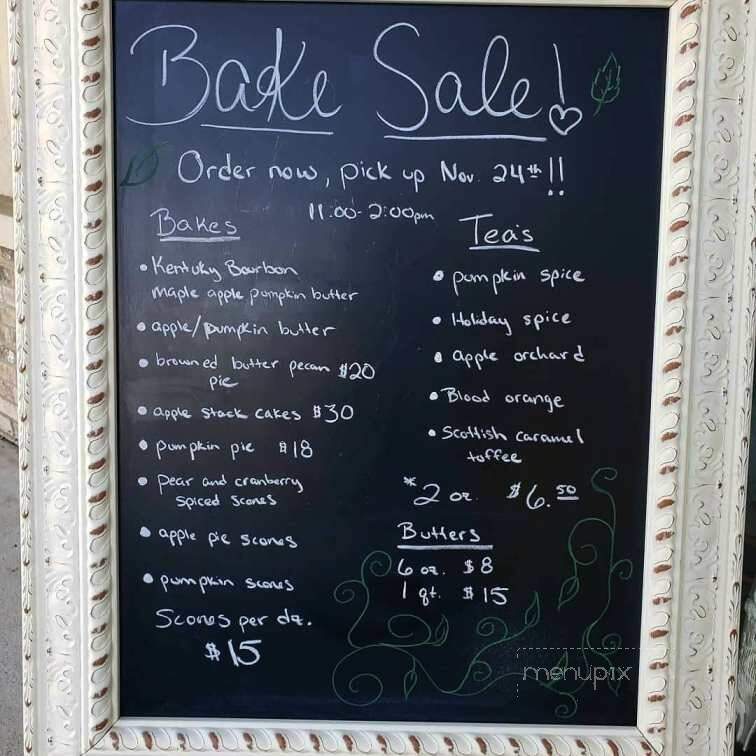 Bake Sale!
Order now, pick up Nov. 24th!!
11:00-2:00pm
Bakes
• Kentuky Bourbon
maple apple pumpkin butter
• apple/pumpkin butter
• browned butter pecan $20
pie
• apple stack cakes $30
• pumpkin pie $18
• pear and cranberry
spiced scones
• apple pie scones
• pumpkin scones
Scones per dz.
$15
Teas
• pumpkin spice
• Holiday spice
• apple orchard
• Blood orange
• Scottish caramel
toffee
*2 oz. $6.50
Butters
6 oz. $8
1 qt. $15
menupix